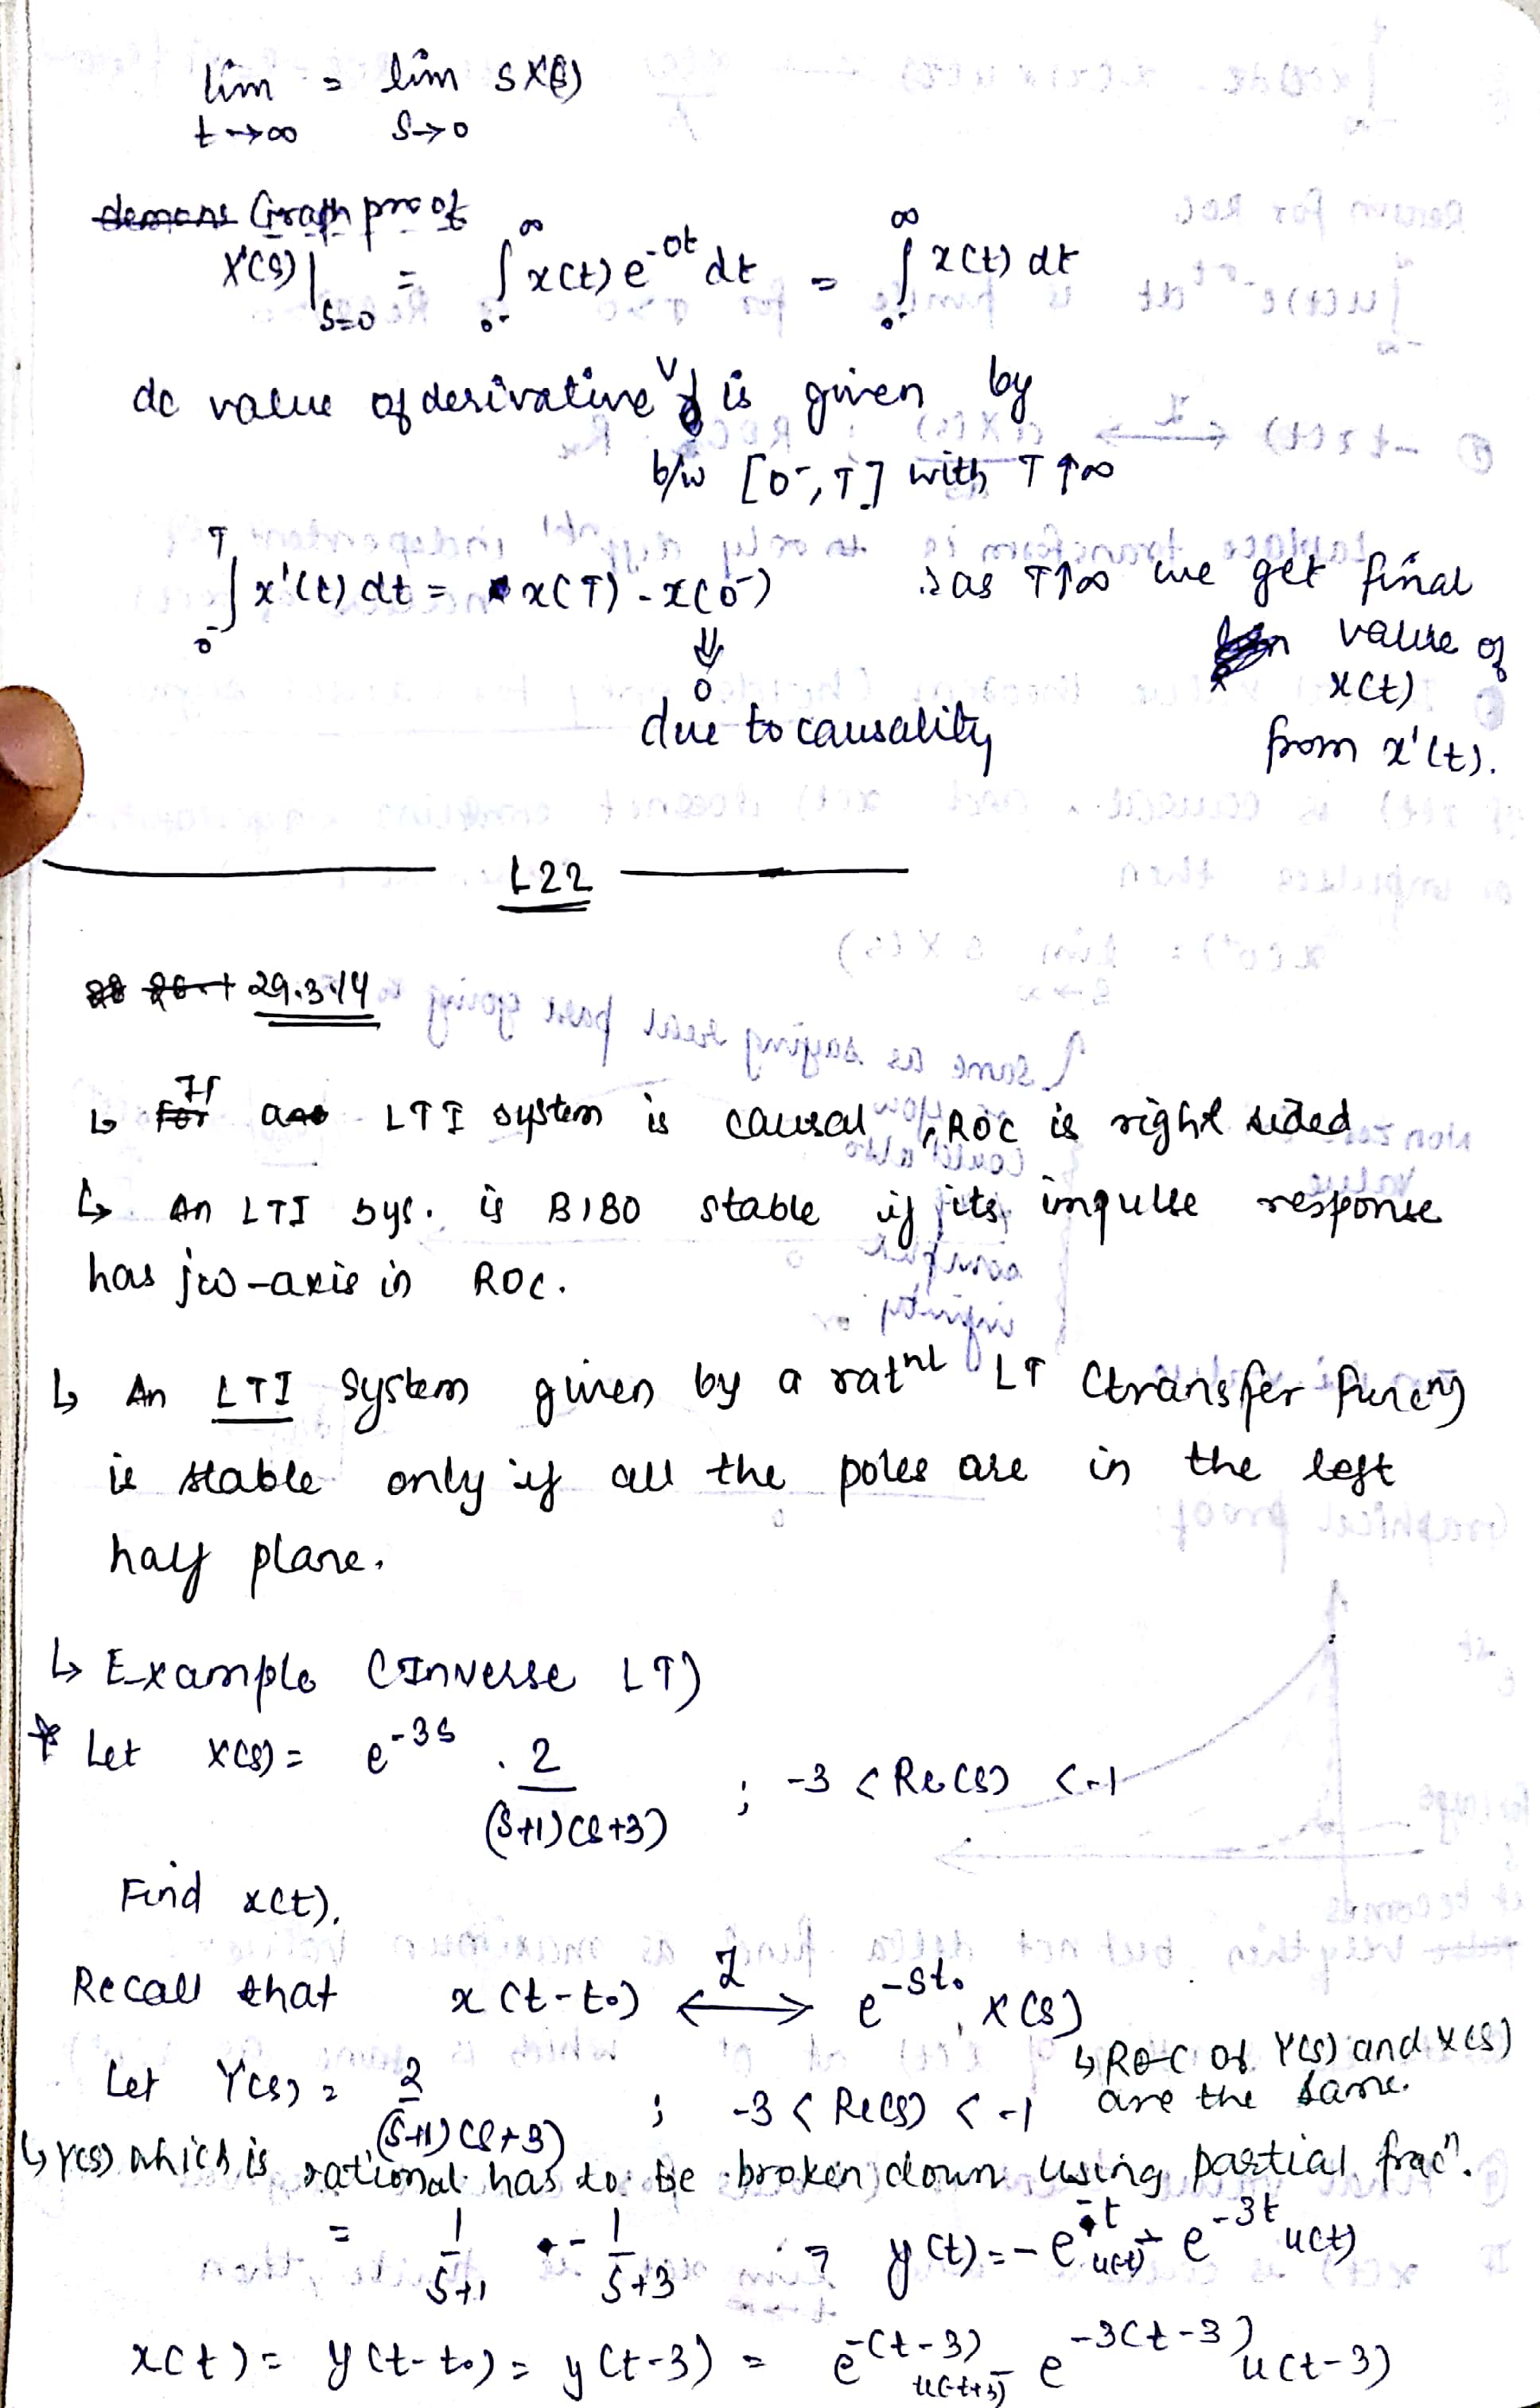 lim = lim sX(s)
t→∞ s→0
Graph proof
X(s)|s=0 = ∫0-^∞ x(t) e^-0t dt = ∫0-^∞ x(t) dt
dc value of derivative is given by
b/w [0-, T] with T↑∞
∫0-^T x'(t) dt = x(T) - x(0-) as T↑∞ we get final
⇓ value of
0 x(t)
due to causality from x'(t).
L22
29.3.14
↳ If LTI system is causal, ROC is right sided
↳ An LTI sys. is BIBO stable if its impulse response
has jω-axis in ROC.
↳ An LTI system given by a ratnl LT (transfer funcn)
is stable only if all the poles are in the left
half plane.
↳ Example (Inverse LT)
* Let X(s) = e^-3s . 2/((s+1)(s+3)) ; -3 < Re(s) < -1
Find x(t).
Recall that x(t-t0) ⟷ℒ e^-st0 X(s)
↳ ROC of Y(s) and X(s)
are the same.
Let Y(s) = 2/((s+1)(s+3)) ; -3 < Re(s) < -1
↳ Y(s) which is rational has to be broken down using partial fracn.
= 1/(s+1) - 1/(s+3) y(t) = -e^-t u(-t) - e^-3t u(t)
x(t) = y(t-t0) = y(t-3) = e^-(t-3) u(-t+3) - e^-3(t-3) u(t-3)